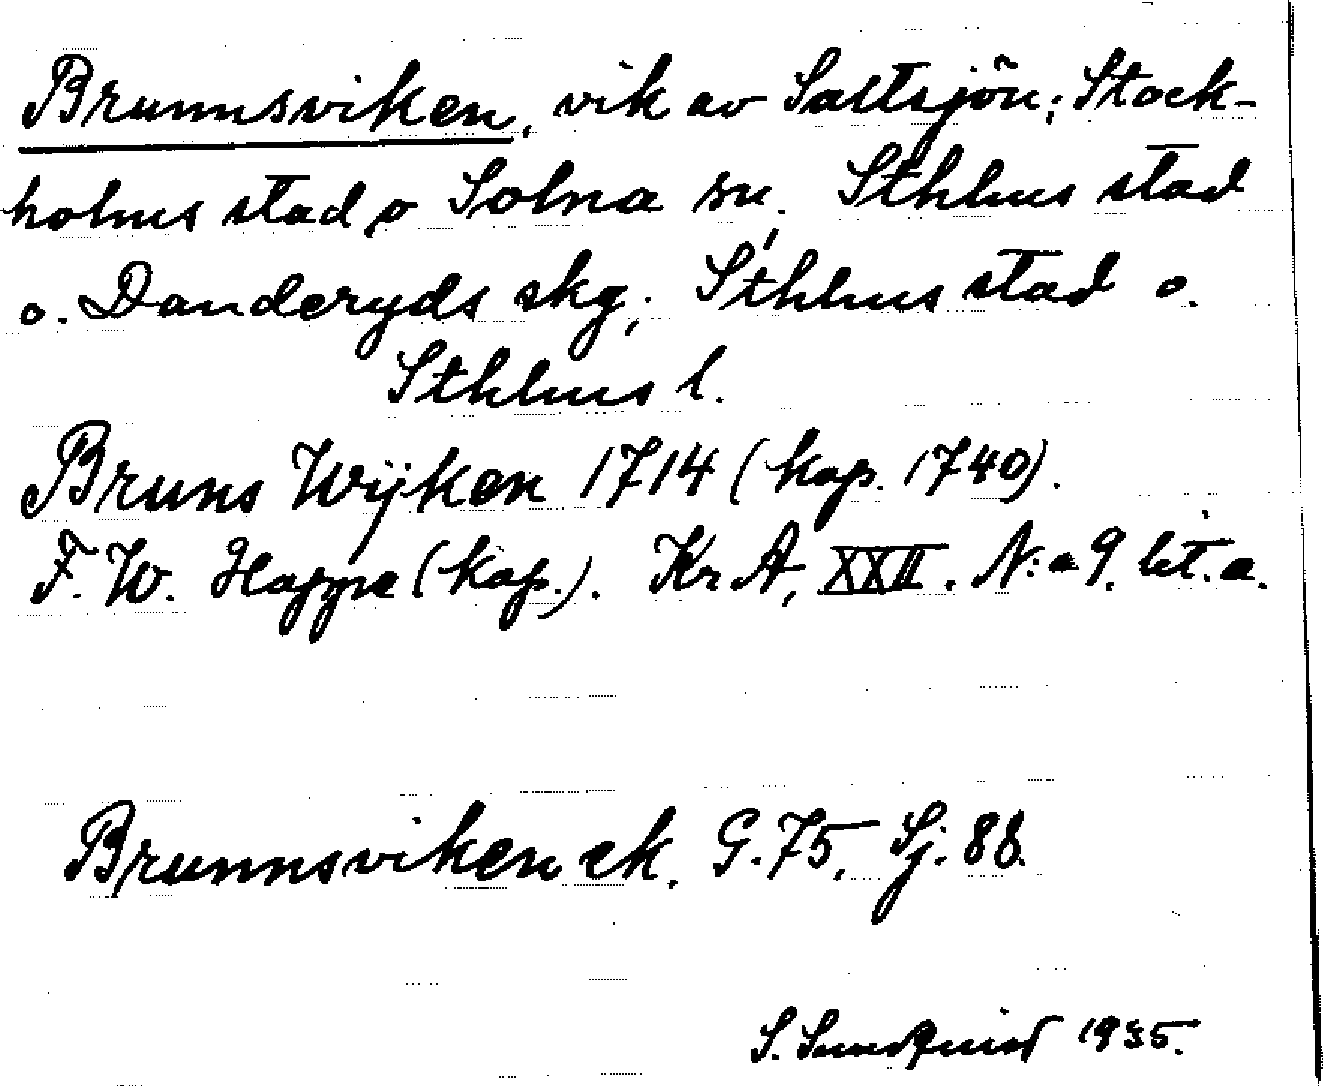 Brunnsviken, vik av Saltsjön; Stock-
holms stad o Solna sn, Sthlms stad
o. Danderyds skg; Sthlms stad o.
Sthlms l.
Bruns Wijken 1714 (kop. 1740).
F. W. Hoppe (kop.). Kr A, XXII. N:o 9. lit. a.
Brunnsviken ek. G. 75, Sj. 88.
S. Sundqvist 1935.